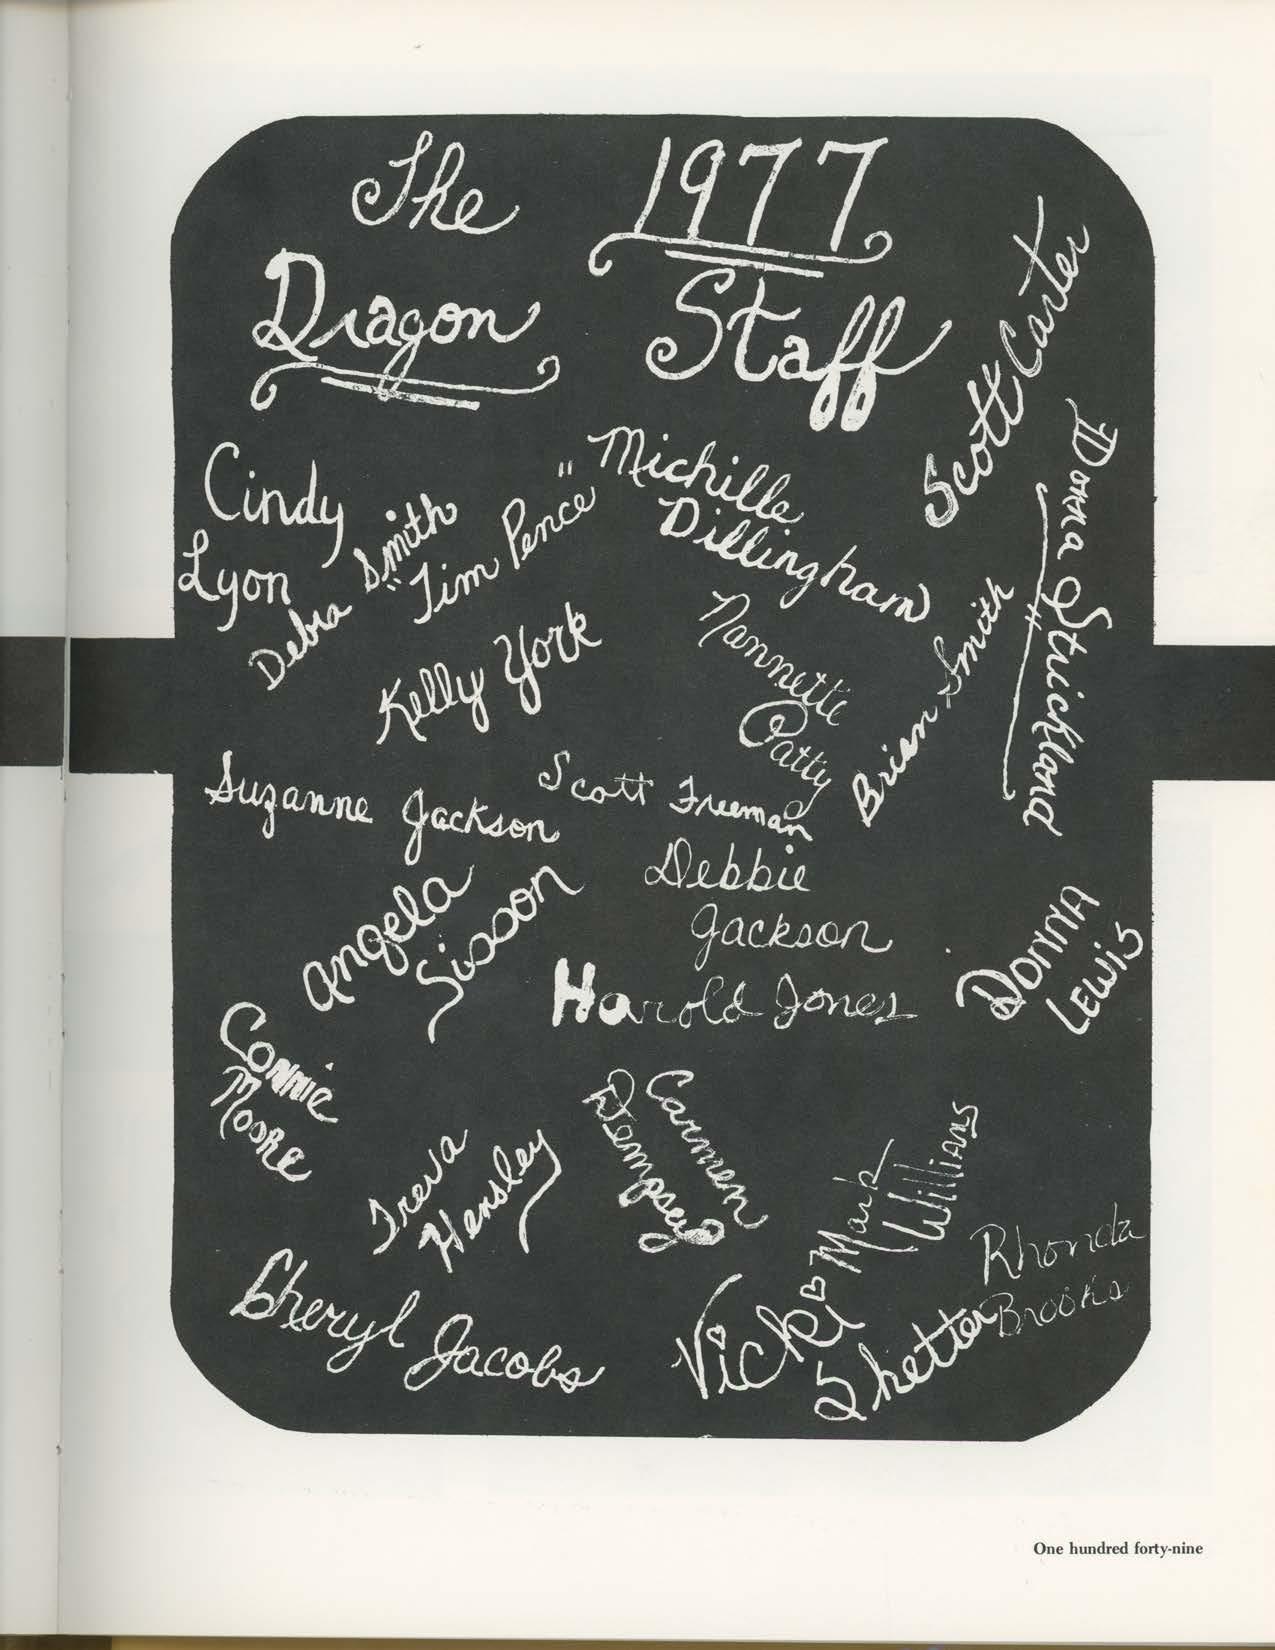 The 1977
Dragon Staff
Scott Carter
Cindy
Lyon
Debra Smith
"Tim Pence"
Michille
Dillingham
Donna Strickland
Kelly York
Nannette
Patty
Brian Smith
Suzanne Jackson
Scott Freeman
Angela
Sisson
Debbie
Jackson
Donna
Lewis
Harold Jones
Connie
Moore
Treva
Hensley
Carmen
Dempsey
Mark
Williams
Rhonda
Brooks
Cheryl Jacobs
Vicki
Shetter
One hundred forty-nine